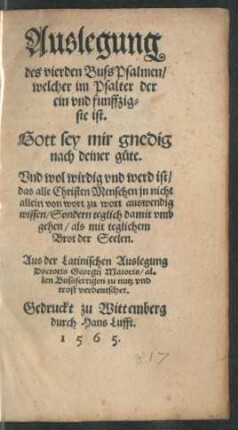 Auslegung
des vierden BußPsalmen/
welcher im Psalter der
ein vnd funffzig-
ste ist.
Gott sey mir gnedig
nach deiner güte.
Vnd wol wirdig vnd werd ist/
das alle Christen Menschen jn nicht
allein von wort zu wort auswendig
wissen/ Sondern teglich damit vmb
gehen/ als mit teglichem
Brot der Seelen.
Aus der Latinischen Auslegung
Doctoris Georgij Maioris/ al-
len Busfertigen zu nutz vnd
trost verdeutschet.
Gedruckt zu Wittemberg
durch Hans Lufft.
1565.
317